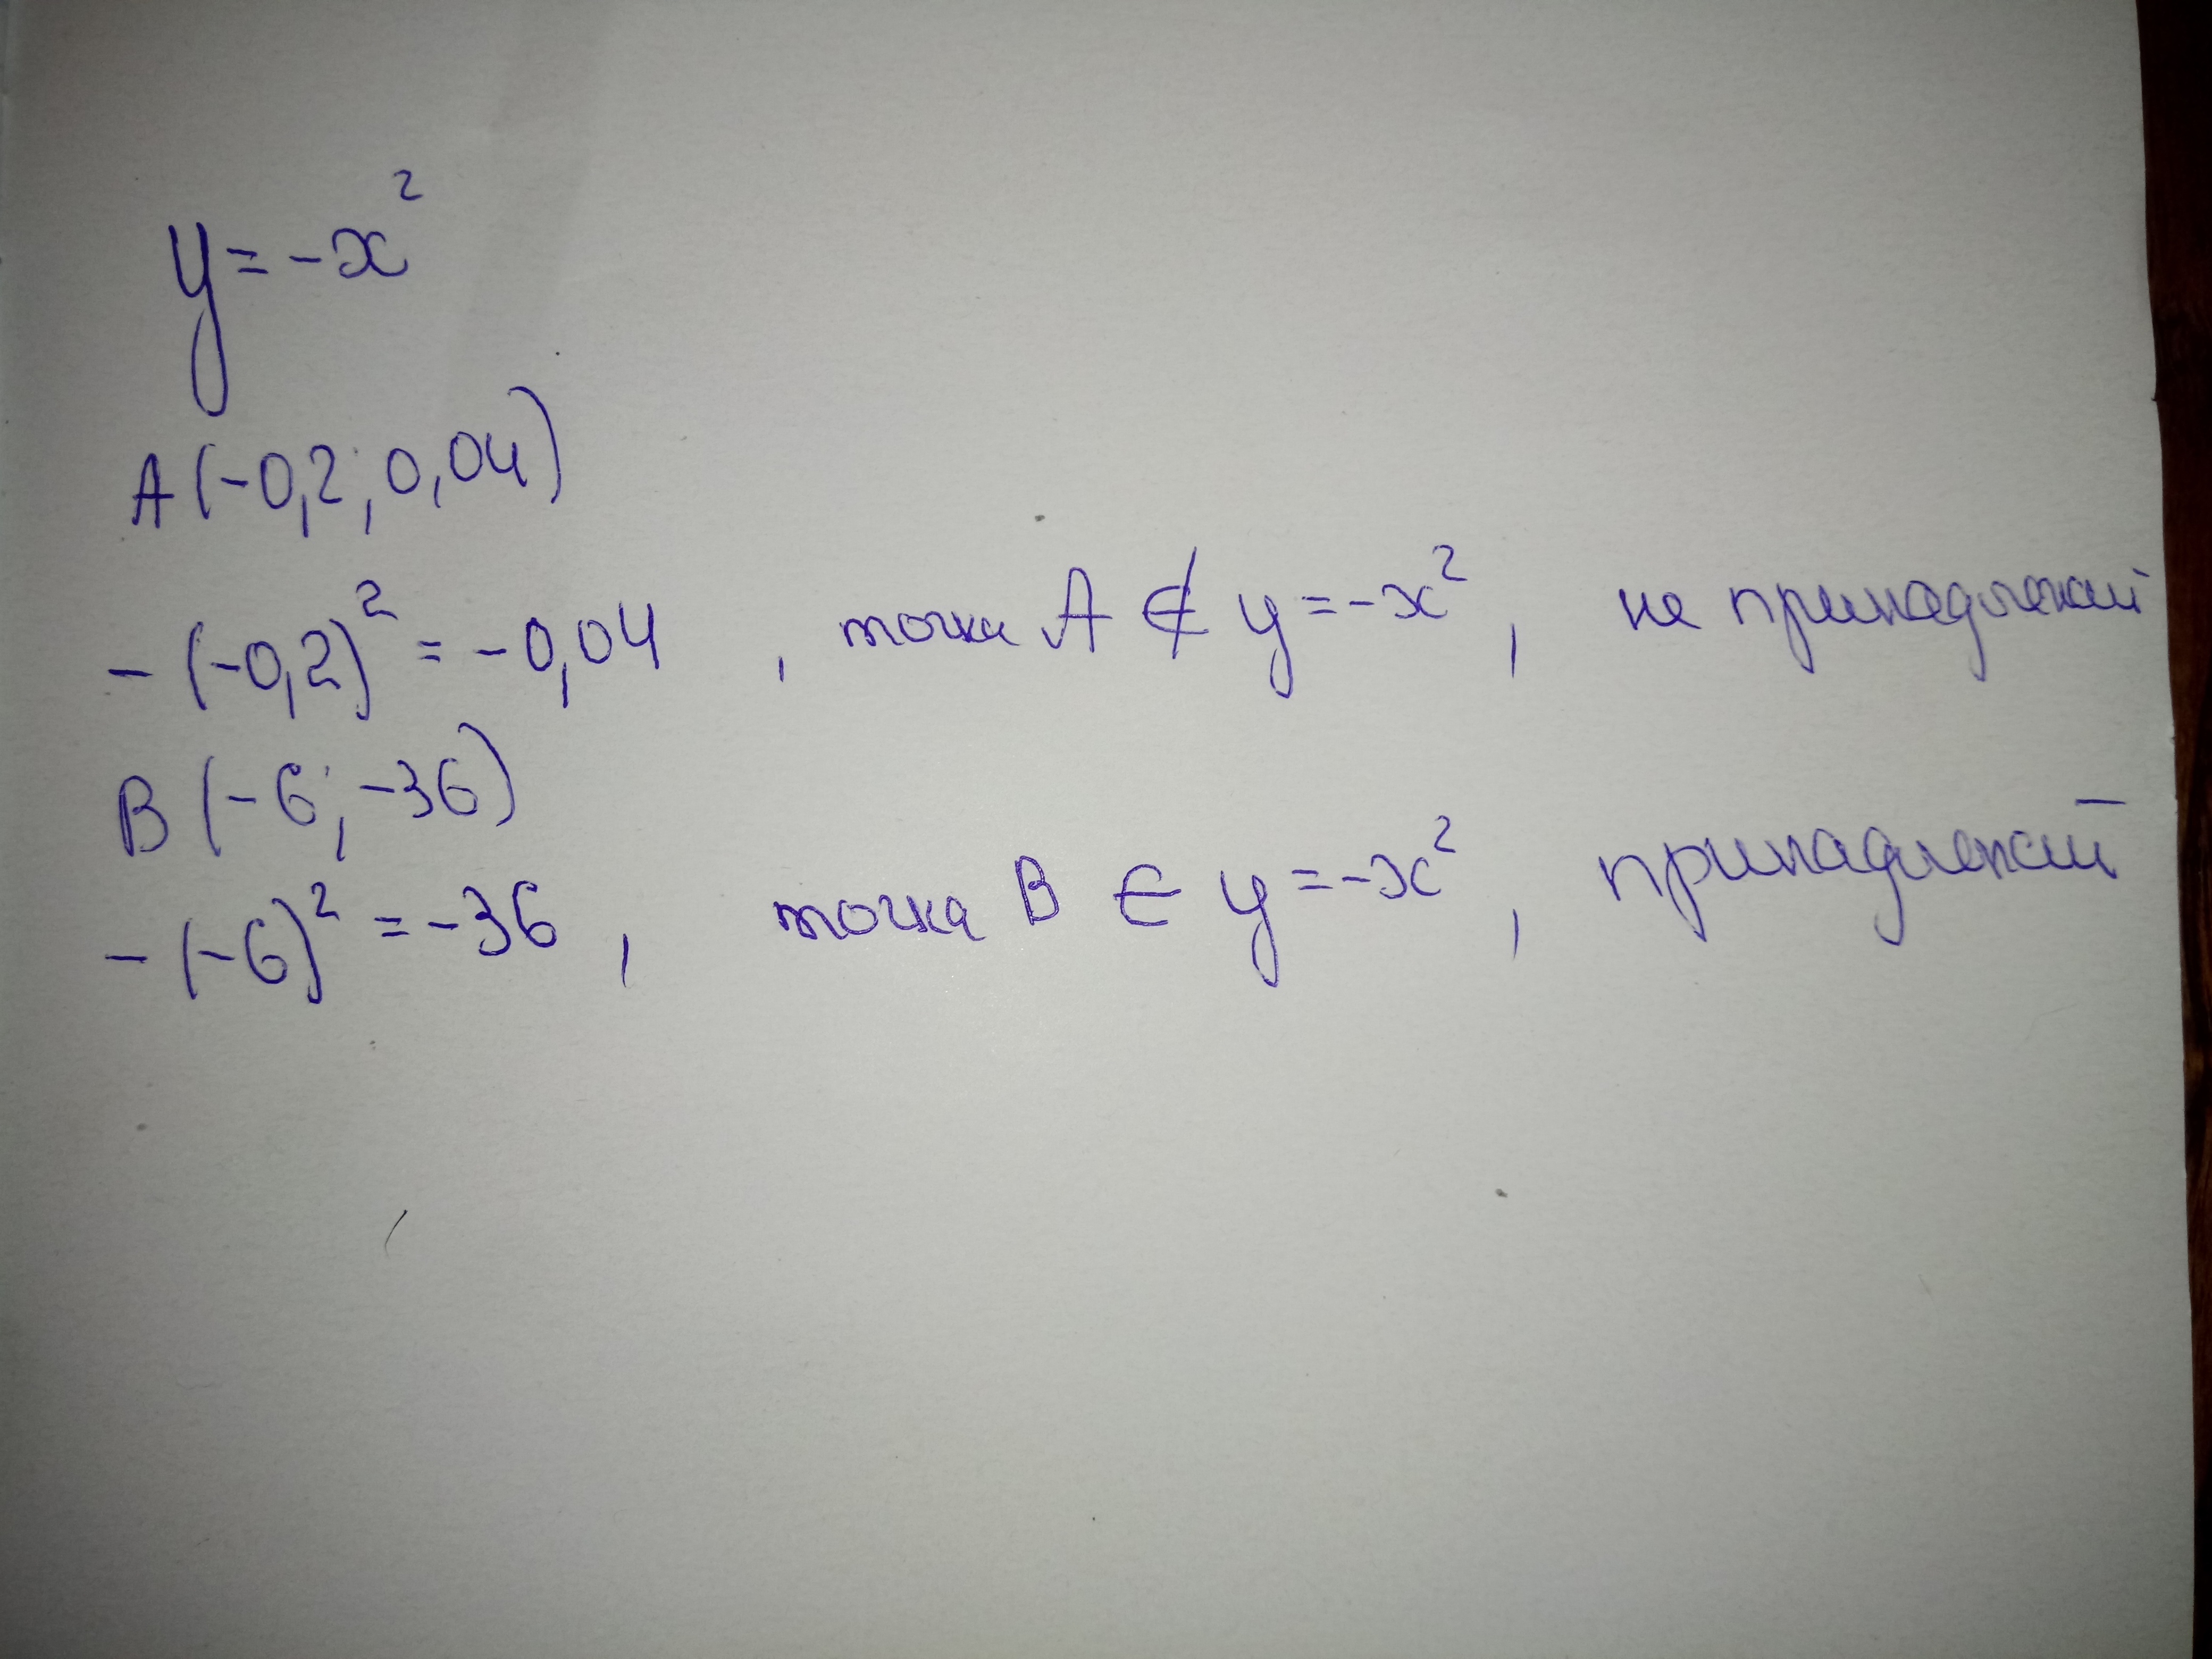 y = -x²
A (-0,2; 0,04)
- (-0,2)² = -0,04 , точка A ∉ y = -x² , не принадлежит
B (-6; -36)
- (-6)² = -36 , точка B ∈ y = -x² , принадлежит